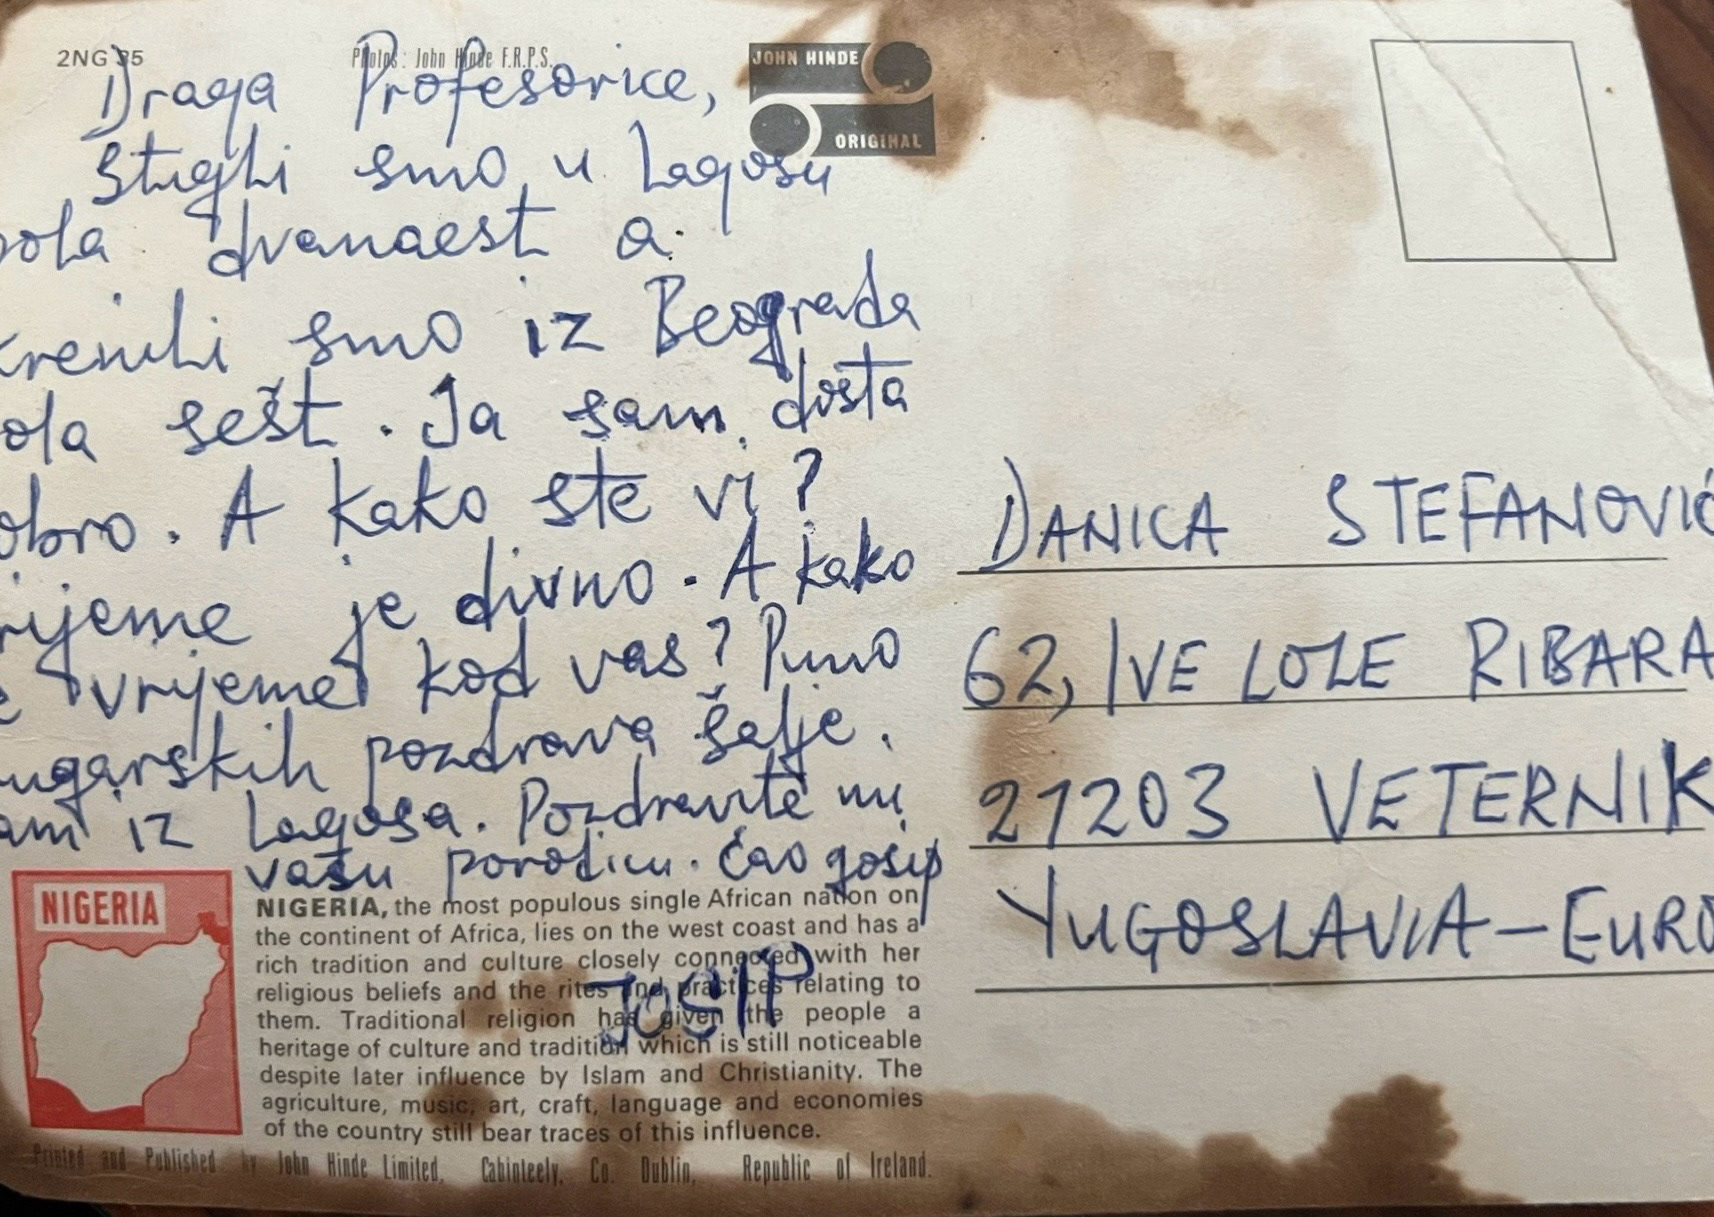 2NG 35
Photos: John Hinde F.R.P.S.
JOHN HINDE
ORIGINAL
Draga Profesorice,
Stigli smo u Lagosu
pola dvanaest a
krenili smo iz Beograda
pola sešt. Ja sam dosta
dobro. A kako ste vi?
Vrijeme je divno. A kako
je vrijeme kod vas? Puno
drugarskih pozdrava šalje
vam iz Lagosa. Pozdravite mi
vašu porodicu. Ćao gosip
JOSIP
DANICA STEFANOVIĆ
62, IVE LOLE RIBARA
21203 VETERNIK
YUGOSLAVIA – EURO
NIGERIA
NIGERIA, the most populous single African nation on
the continent of Africa, lies on the west coast and has a
rich tradition and culture closely connected with her
religious beliefs and the rites and practices relating to
them. Traditional religion has given the people a
heritage of culture and tradition which is still noticeable
despite later influence by Islam and Christianity. The
agriculture, music, art, craft, language and economies
of the country still bear traces of this influence.
Printed and Published by John Hinde Limited, Cabinteely, Co. Dublin, Republic of Ireland.